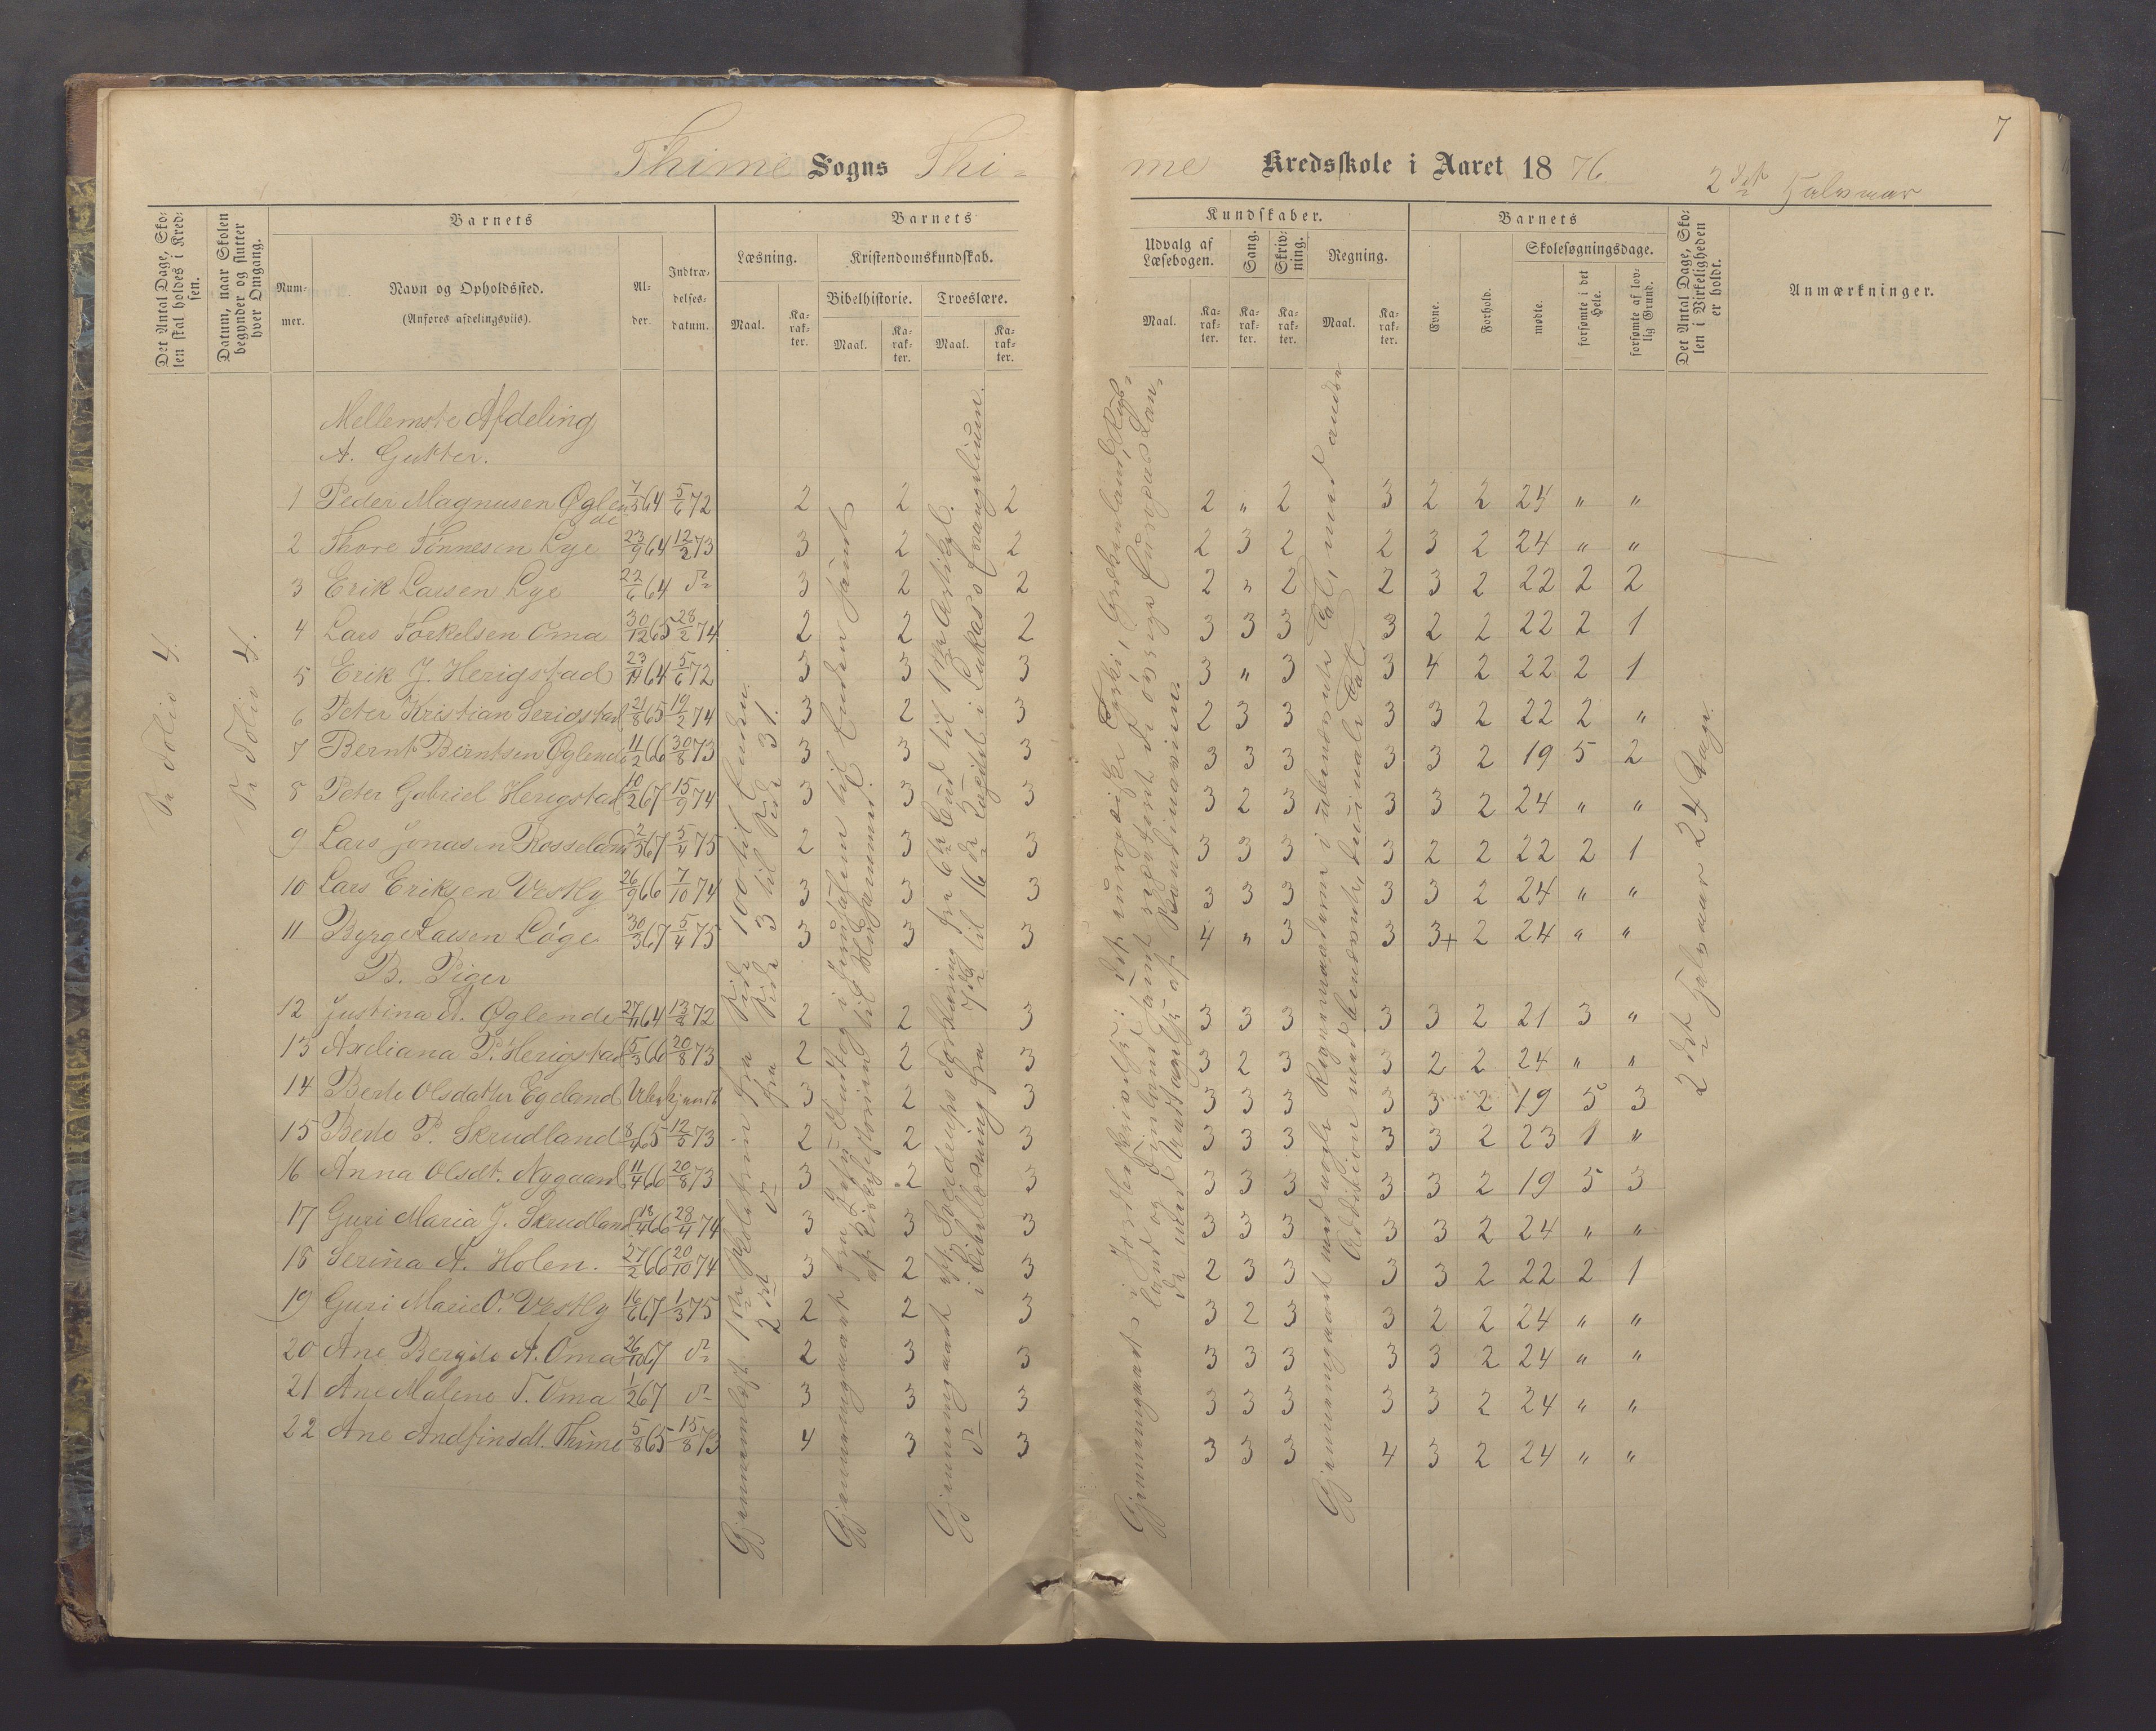 7
Thime Sogns Thi-
me Kredsskole i Aaret 1876.
2det Halvaar
Det Antal Dage, Skolen skal holdes i Kredsen.
Datum, naar Skolen begynder og slutter hver Omgang.
Barnets
Nummer.
Navn og Opholdssted.
(Anføres afdelingsviis).
Alder.
Indtrædelsesdatum.
Barnets
Læsning.
Kristendomskundskab.
Bibelhistorie.
Troeslære.
Maal.
Karakter.
Maal.
Karakter.
Maal.
Karakter.
Kundskaber.
Udvalg af Læsebogen.
Sang.
Skrivning.
Regning.
Maal.
Karakter.
Karakter.
Karakter.
Maal.
Karakter.
Barnets
Evne.
Forhold.
Skolesøgningsdage.
mødte.
forsømte i det Hele.
forsømte af lovlig Grund.
Det Antal Dage, Skolen i Virkeligheden er holdt.
Anmærkninger.
Mellemste Afdeling
A. Gutter.
1 Peder Magnusen Øglende 7/5 64 5/6 72 2 2 2 2 " 2 3 2 2 24 " "
2 Thore Tønnesen Lye 23/9 64 12/2 73 3 2 2 2 3 2 2 3 2 24 " "
3 Erik Larsen Lye 22/6 64 do 3 2 2 2 " 2 2 3 2 22 2 2
4 Lars Torkelsen Oma 30/12 65 28/2 74 2 2 2 3 3 3 3 2 2 22 2 1
5 Erik J. Herigstad 23/11 64 5/6 72 3 3 3 3 " 3 3 4 2 22 2 1
6 Peter Kristian Serigstad 21/8 65 19/2 74 3 2 3 2 3 3 3 3 2 22 2 "
7 Bernt Berntsen Øglend 11/2 66 30/8 73 3 3 3 3 3 3 3 3 2 19 5 2
8 Peter Gabriel Herigstad 10/2 67 15/9 74 3 3 3 3 2 3 3 3 2 24 " "
9 Lars Jonasen Rosseland 2/3 67 5/4 75 2 3 3 3 3 3 3 2 2 22 2 1
10 Lars Eriksen Vestly 26/9 66 7/10 74 3 3 3 3 3 3 3 3 2 24 " "
11 Byrge Larsen Løge 30/3 67 5/4 75 3 3 3 4 " 3 3 3+ 2 24 " "
B. Piger
12 Justina A. Øglende 27/11 64 13/8 72 2 2 3 3 3 3 3 3 2 21 3 "
13 Axeliana P. Herigstad 5/3 66 20/8 73 2 2 3 3 2 3 3 2 2 24 " "
14 Berte Olsdatter Egeland Ubekjendt 3 2 3 3 3 3 3 3 2 19 5 3
15 Berte P. Skrudland 8/4 65 12/5 73 2 2 3 3 3 3 3 3 2 23 1 "
16 Anna Olsdt. Nygaard 11/4 66 20/8 73 3 2 3 3 3 3 3 3 2 19 5 3
17 Guri Maria J. Skrudland 18/4 66 28/4 74 3 3 3 3 3 3 3 3 2 24 " "
18 Serina A. Holen. 27/2 66 20/10 74 3 2 3 2 3 3 3 3 2 22 2 1
19 Guri Marie O. Vestly 16/6 67 1/3 75 2 2 3 3 2 3 3 2 2 24 " "
20 Ane Bergite A. Oma 26/10 67 do 2 3 3 3 3 3 3 3 2 24 " "
21 Ane Malene T. Oma 1/2 67 do 3 3 3 3 3 3 3 3 2 24 " "
22 Ane Andfinsdt. Thime 5/8 65 15/8 73 4 3 3 3 3 3 4 3 2 24 " "
Se Folio 4.
Se Folio 4.
Gjennemlæst 1ste Skoletrin fra Side 100 til Enden.
2det do fra Side 3 til Side 31.
Gjennemgaaet fra Jesu Indtog i Jerusalem til Enden samt
af Kirkehistorien til
Gjennemgaaet af Forklaring fra 6te Bud til 1ste Artikel.
do i fra 7de til 16de Kapitel i Lukas's Evangelium.
Gjennemgaaet i Jordbeskrivelse: det europæiske Tyrki, Grækenland, Rusland
og samt repeteret de øvrige Europas Lande
med Undtagelse af Skandinavien.
Gjennemgaaet med nogle Regnemaaderne i ubenævnte Tal, med andre
Addition med benævnte, Tal.
2det Halvaar 24 Dage.